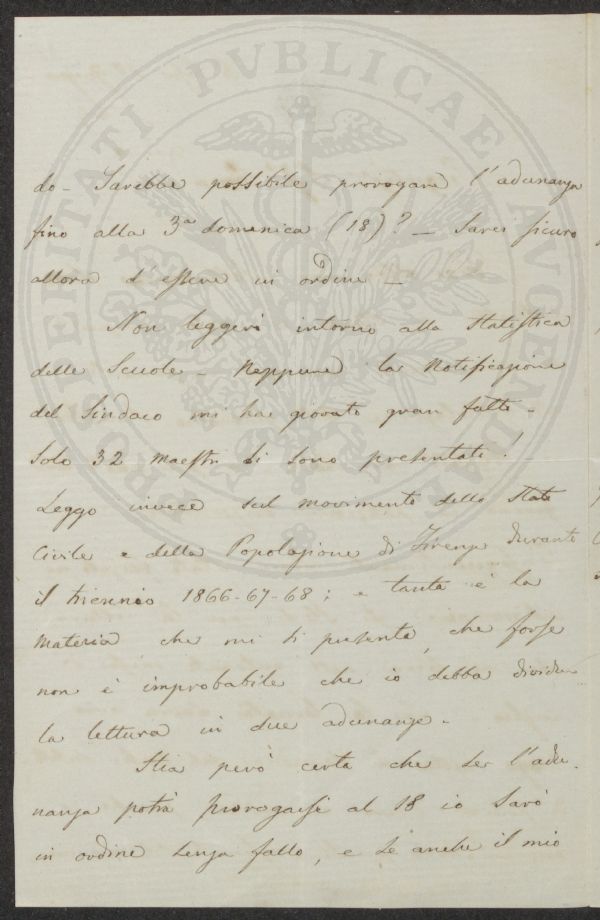 PROSPERITATI PVBLICAE AVGENDAE
do - Sarebbe possibile prorogare l'adunanza
fino alla 3a domenica (18)? - Sarei sicuro
allora d'essere in ordine -
Non leggerò intorno alla Statistica
delle Scuole - Neppure la Notificazione
del Sindaco mi ha giovato gran fatto -
Solo 32 maestri si sono presentati!
Leggo invece sul movimento dello Stato
Civile e della Popolazione di Firenze durante
il triennio 1866-67-68; e tanta è la
materia che mi si presenta, che forse
non è improbabile che io debba dividere
la lettura in due adunanze -
Stia però certa che se l'adu-
nanza potrà prorogarsi al 18 io sarò
in ordine senza fallo, e se anche il mio